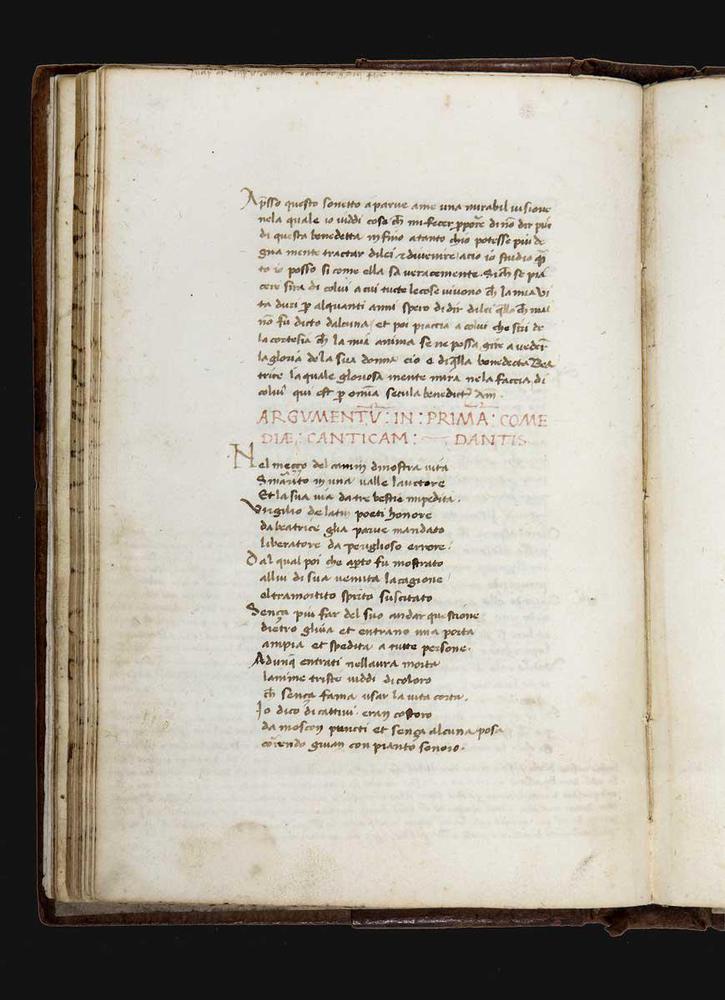 Ap̄sso questo sonetto aparue ame una mirabil uisione
nela quale io uiddi cose ch̄ mi fecer ꝓpor̄e di nō dir piu
di questa benedetta infino atanto chio potesse piu de
gna mente tractar dilei ⁊ diuenire acio io studio q̄
to io posso si come ella sa ueracemente. Sich̄ se pia
cere sira di colui a cui tucte le cose uiuono ch̄ la mia ui
ta duri ꝑ alquanti anni spero di dir dilei q̄llo ch̄ mai
nō fu dicto dalcuna / et poi piaccia a colui che siri de
la cortesia ch̄ la mia anima se ne possa gire a ueder
la gloria de la sua donna cio e di q̄lla benedecta Bea
trice laquale gloriosa mente mira nela faccia di
colui qui est ꝑ om̄ia secula benedict᷑ Am̄.
ARGVMENTV̄ : IN : PRIMA : COME
DIÆ : CANTICAM : DANTIS
Nel meçço del camin dinostra uita
Smarito in una ualle lauctore
Et la sua uia da tre bestie impedita.
Virgilio de latin poeti honore
da beatrice glia parue mandato
liberatore da periglioso errore :
Dal qual poi che ap̄to fu mostrato
allui di sua uenuta la cagione
el tramortito spirto suscitato
Sença piu far del suo andar questione
dietro gliua et entrano una porta
ampia et spedita a tutte persone.
Adunq̄ entrati nellaura morta
lanime triste uiddi di coloro
ch̄ sença fama usar la uita corta.
Io dico di cattiui. eran costoro
da moscon puncti et sença alcuna posa
corendo giuan con pianto sonoro.